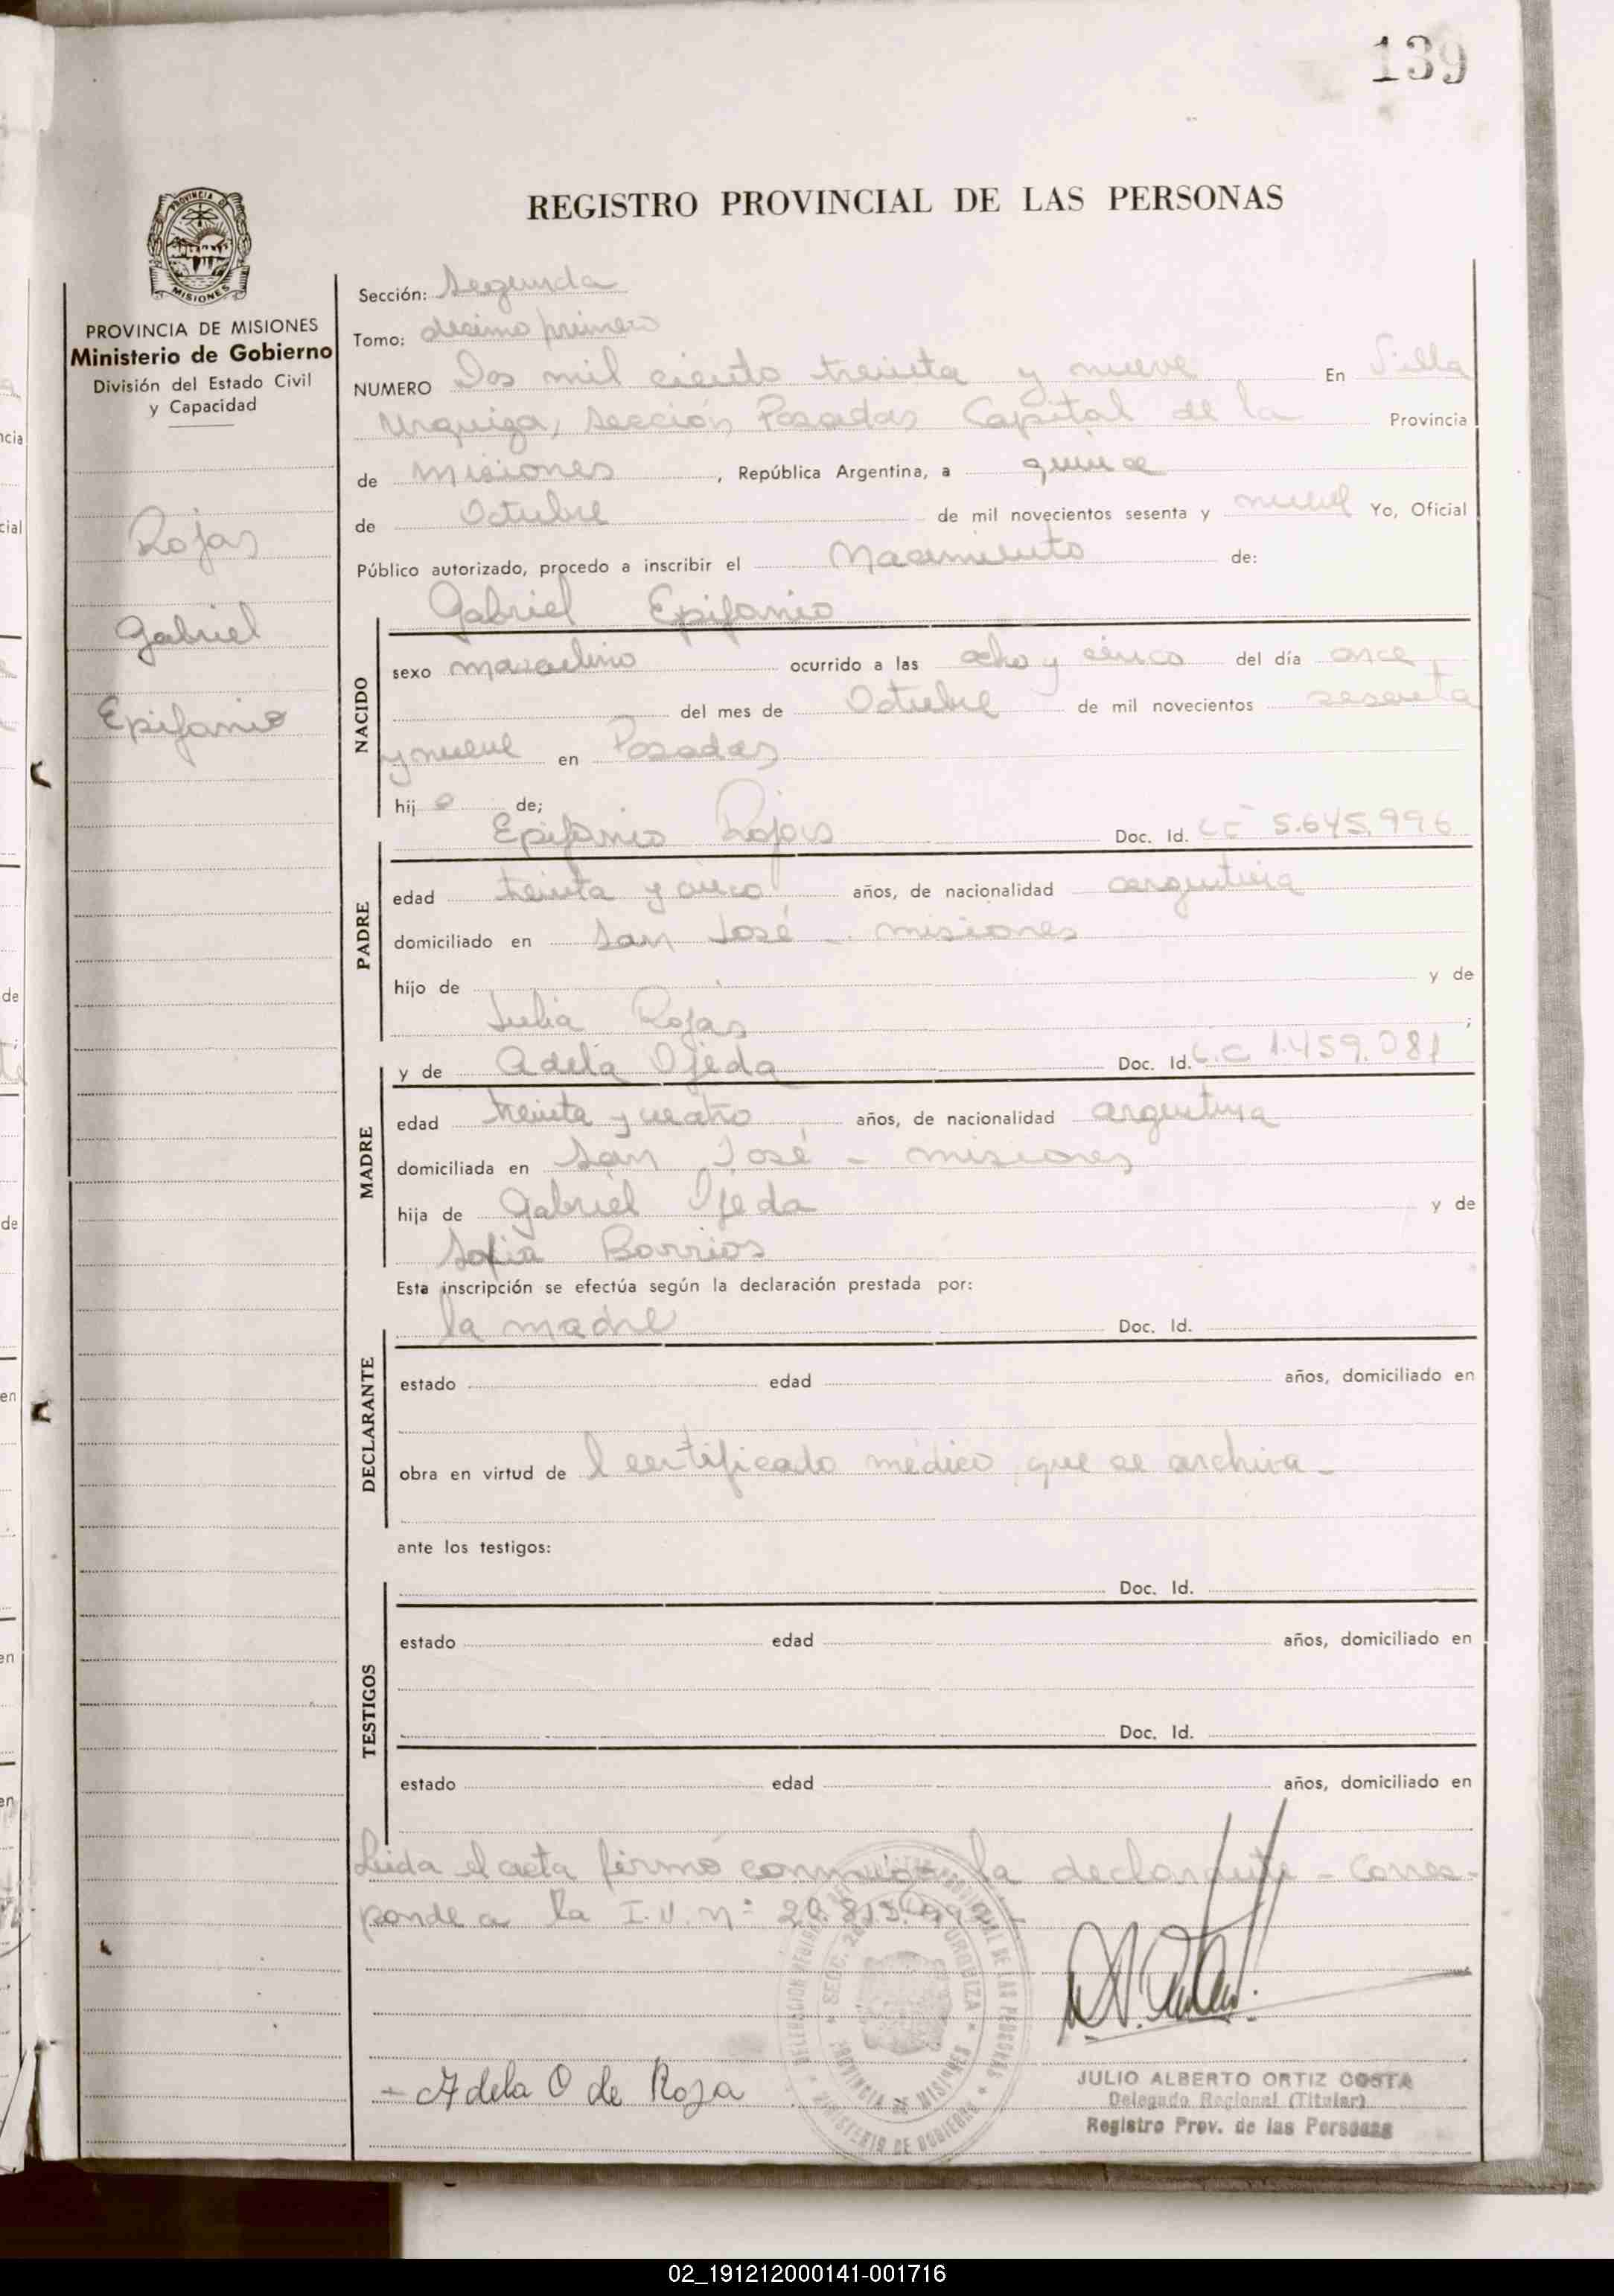 139
REGISTRO PROVINCIAL DE LAS PERSONAS
PROVINCIA DE MISIONES
Ministerio de Gobierno
División del Estado Civil
y Capacidad
Rojas
Gabriel
Epifanio
Sección: Segunda
Tomo: décimo primero
NUMERO Dos mil ciento treinta y nueve En Villa
Urquiza, Sección Posadas Capital de la Provincia
de Misiones, República Argentina, a quince
de Octubre de mil novecientos sesenta y nueve Yo, Oficial
Público autorizado, procedo a inscribir el Nacimiento de:
Gabriel Epifanio
NACIDO
sexo masculino ocurrido a las ocho y cinco del día once
del mes de Octubre de mil novecientos sesenta
y nueve en Posadas
hij o de;
Epifanio Rojas Doc. Id. 5.645.996
PADRE
edad treinta y cinco años, de nacionalidad argentina
domiciliado en San José - misiones
hijo de y de
Julia Rojas ;
y de Adela Ojeda Doc. Id. L.C 1.459.081
MADRE
edad treinta y cuatro años, de nacionalidad argentina
domiciliada en San José - misiones
hija de Gabriel Ojeda y de
Sofia Barrios
Esta inscripción se efectúa según la declaración prestada por:
la madre Doc. Id.
DECLARANTE
estado edad años, domiciliado en
obra en virtud de l certificado médico que se archiva -
ante los testigos:
Doc. Id.
TESTIGOS
estado edad años, domiciliado en
Doc. Id.
estado edad años, domiciliado en
Leida el acta firmó conmigo la declarante - Corres-
ponde a la I.U. nº
- Adela O de Roja
JULIO ALBERTO ORTIZ COSTA
Delegado Regional (Titular)
Registro Prov. de las Personas
02_191212000141-001716